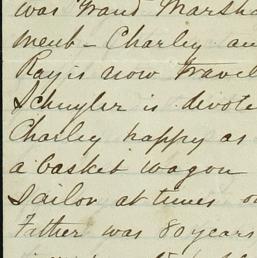 was Grand Marsha
ment - Charley an
Ray is now travel
Schuyler is devote
Charley happy as
a basket wagon
Sailor at times o
Father was 80 years